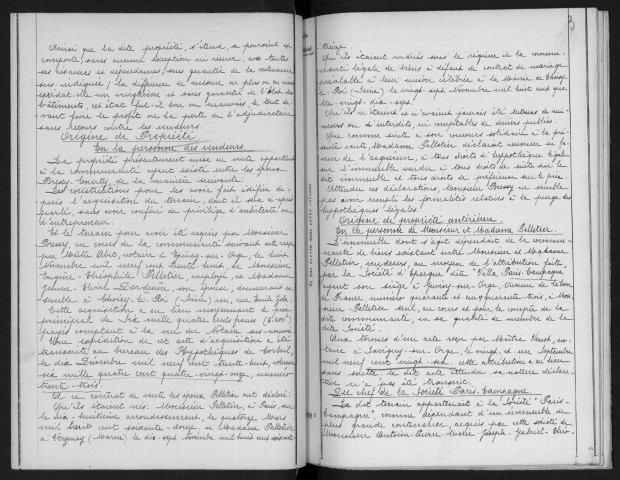 Ainsi que la dite propriété, s'étend, se poursuit et
comporte, sans aucune exception ni réserve, avec toutes
ses aisances et dépendances, sans garantie de la contenance
sus-indiquée, la différence de mesure en plus ou en moins
excédât-elle un vingtième et sans garantie de l'état des
bâtiments, cet état fut-il bon ou mauvais, le tout de-
vant faire le profit ou la perte de l'adjudicataire
sans recours contre les vendeurs.
Origine de Propriété
En la personne des vendeurs.
La propriété présentement mise en vente appartient
à la communauté ayant existé entre les époux
de la manière suivante:
Les constructions pour les avoir fait édifier de-
puis l'acquisition du terrain, dont il sera ci-après
parlé, sans avoir conféré de privilège d'architecte ou
d'entrepreneur.
Et le terrain pour avoir été acquis par Monsieur
au cours de la communauté suivant acte reçu
par Maître notaire à Epinay-sur-Orge, le huit
Novembre mil neuf cent trente huit, de Monsieur
Eugène Théophile Pelletier, employé, et Madame
Jeanne son épouse, demeurant en-
semble à Choisy-le-Roi (Seine)
Cette acquisition a eu lieu moyennant le prix
principal de Six mille quatre cents francs (6.400)
payés comptant à la vue du Notaire sus-nommé
Une expédition de cet acte d'acquisition a été
transcrite au bureau des Hypothèques de Corbeil
le dix Décembre mil neuf cent trente-huit, volume
six mille quatre cent quatre-vingt-onze, numéro
trente-trois.
A ce contrat de vente les époux Pelletier ont déclaré:
Qu'ils étaient nés: Monsieur Pelletier, à Paris, sur
le dix-huitième arrondissement, le quatorze Mars
mil huit cent soixante-douze, et Madame Pelletier
à Epernay (Marne) le dix-sept Novembre mil huit cent soixante
3
treize.
Qu'ils étaient mariés sous le régime de la commu-
nauté légale de biens à défaut de contrat de mariage
préalable à leur union célébrée à la Mairie de Choisy-
le-Roi (Seine) le vingt-sept Novembre mil huit cent qua-
tre-vingt-dix-sept.
Qu'ils n'étaient et n'avaient jamais été tuteurs de mi-
neurs ou d'interdits ni comptables de deniers publics.
Que comme suite à son concours solidaire à la pré-
sente vente, Madame Pelletier déclarait renoncer en fa-
veur de l'acquéreur, à tous droits d'hypothèque légale
sur l'immeuble vendu et à tous droits de suite sur le
dit immeuble et tous droits de préférence sur le prix.
Attendu ces déclarations, Monsieur ne semble
pas avoir rempli les formalités relatives à la purge des
hypothèques légales.
Origine de propriété antérieure.
En la personne de Monsieur et Madame Pelletier.
L'immeuble dont s'agit dépendait de la commu-
nauté de biens existant entre Monsieur et Madame
Pelletier, vendeurs, au moyen de l'attribution faite
par la Société d'Epargne dite "Villa Paris-Campagne"
ayant son siège à Juvisy-sur-Orge, avenue de la Cour
de France numéro quarante et un, quarante trois, à Mon-
sieur Pelletier seul, au cours et pour le compte de la
dite communauté, en sa qualité de membre de la
dite Société.
Aux termes d'un acte reçu par Maître no-
taire à Savigny-sur-Orge, le vingt et un Septembre
mil neuf cent vingt-six, cette attribution a eu lieu
sans soulte, le dit acte attendu sa nature déclara-
tive n'a pas été transcrit.
Du chef de la Société Paris-Campagne.
Le dit terrain appartenait à la Société "Paris-
Campagne", comme dépendant d'un immeuble de
plus grande contenance, acquis par cette société de
Monsieur Antoine-Pierre-Marie-Joseph-Gabriel-